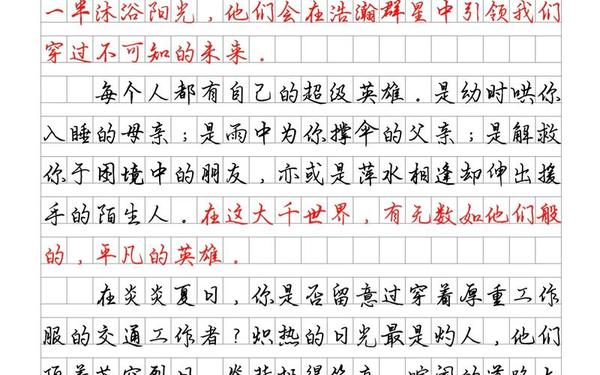 一半沐浴阳光，他们会在浩瀚群星中引领我们
穿过不可知的未来.
每个人都有自己的超级英雄.是幼时哄你
入睡的母亲;是雨中为你撑伞的父亲;是解救
你于困境中的朋友,亦或是萍水相逢却伸出援
手的陌生人.在这大千世界,有无数如他们般
的,平凡的英雄.
在炎炎夏日,你是否留意过穿着厚重工作
服的交通工作者?炽热的日光最是灼人,他们